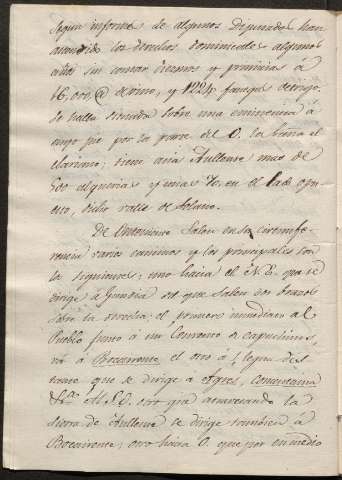 Segun informes de algunos Diputados han
ascendido los derechos dominicales algunos
años sin contar diezmos y primicias á
16.000 @ de vino, y 1224 fanegas de trigo.
Se halla situada sobre una eminencia á
cuyo pie por la parte del O. la baña el
clariano; tiene acia Aullente mas de
500 alquerias y unas 70. en el lado opu-
esto, dicho valle de
De Onteniente Salen en su circumfe-
rencia varios caminos y los principales son
los siguientes; uno hacia el N.E. que se
dirige á Gandia del que salen dos brazos
sobre la derecha; el primero inmediato al
Pueblo junto á un Convento de capuchinos,
vá á Bocairente, el otro á legua de dis-
tancia que se dirige á Agres, Concentaina
&ra. Al S.O. otro que atravesando la
sierra de Aullente se dirige tambien á
Bocairente; otro hacia O. que por en medio